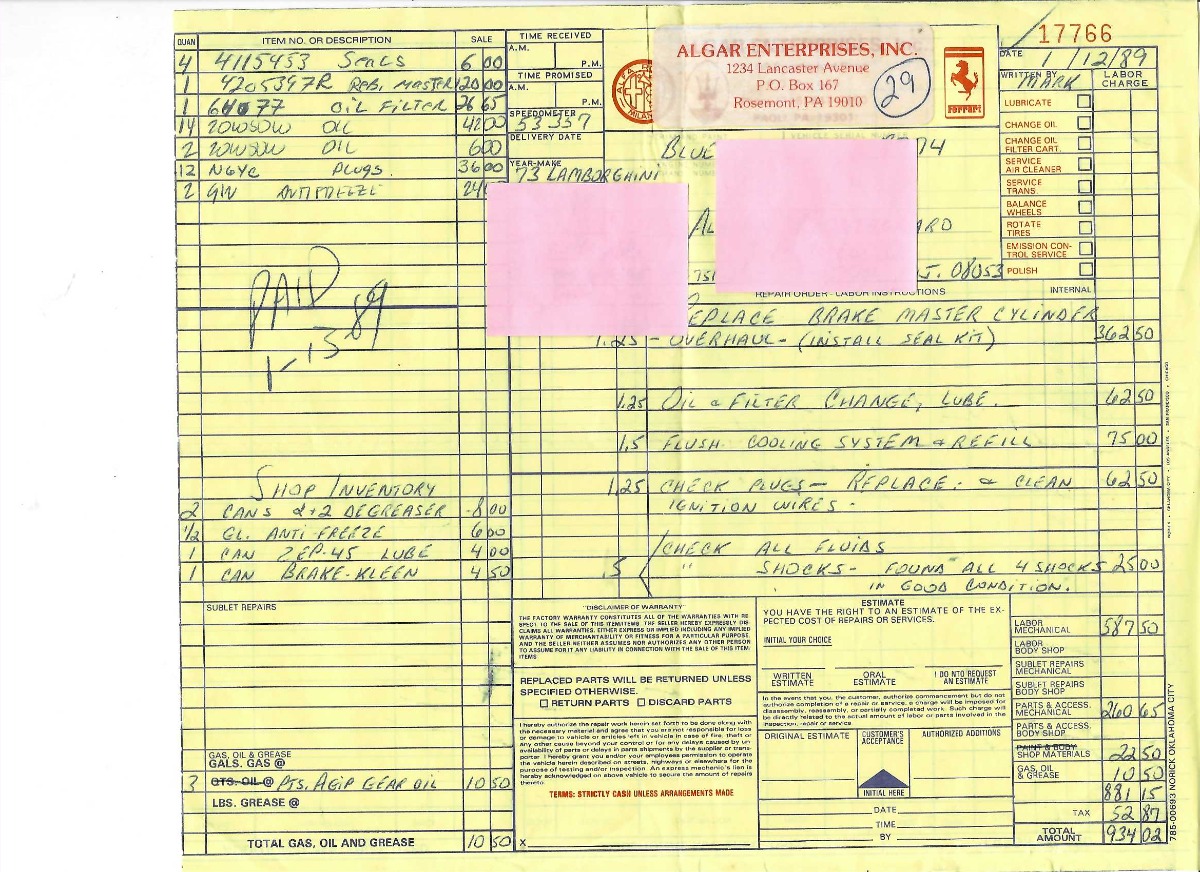 17766
ALGAR ENTERPRISES, INC.
1234 Lancaster Avenue
P.O. Box 167
Rosemont, PA 19010
29
Ferrari
DATE 1/12/89
WRITTEN BY MARK
LABOR CHARGE
TIME RECEIVED
A.M.
P.M.
TIME PROMISED
A.M.
P.M.
SPEEDOMETER
53357
DELIVERY DATE
YEAR-MAKE
73 LAMBORGHINI
BLUE
74
08053
LUBRICATE
CHANGE OIL
CHANGE OIL FILTER CART.
SERVICE AIR CLEANER
SERVICE TRANS.
BALANCE WHEELS
ROTATE TIRES
EMISSION CONTROL SERVICE
POLISH
INTERNAL
QUAN ITEM NO. OR DESCRIPTION SALE
4 4115453 Seals 6 00
1 4205397R Reb. Master 120 00
1 OIL FILTER 26 65
14 20W50W OIL 42 00
2 20W50W OIL 6 00
12 N6YC PLUGS. 36 00
2 G/W ANTIFREEZE 24
PAID
1-13 89
SHOP INVENTORY
2 CANS DEGREASER 8 00
1/2 GL. ANTI-FREEZE 6 00
1 CAN ZEP-45 LUBE 4 00
1 CAN BRAKE-KLEEN 4 50
REPAIR ORDER - LABOR INSTRUCTIONS
EPLACE BRAKE MASTER CYLINDER
1.25 - OVERHAUL - (INSTALL SEAL KIT) 362 50
1.25 OIL & FILTER CHANGE, LUBE. 62 50
1.5 FLUSH COOLING SYSTEM & REFILL 75 00
1.25 CHECK PLUGS - REPLACE. & CLEAN 62 50
IGNITION WIRES -
CHECK ALL FLUIDS
.5 " SHOCKS - FOUND ALL 4 SHOCKS 25 00
IN GOOD CONDITION.
SUBLET REPAIRS
GAS, OIL & GREASE
GALS. GAS @
3 QTS. OIL @ PTS. AGIP GEAR OIL 10 50
LBS. GREASE @
TOTAL GAS, OIL AND GREASE 10 50
"DISCLAIMER OF WARRANTY"
THE FACTORY WARRANTY CONSTITUTES ALL OF THE WARRANTIES WITH RESPECT TO THE SALE OF THIS ITEM/ITEMS. THE SELLER HEREBY EXPRESSLY DISCLAIMS ALL WARRANTIES, EITHER EXPRESS OR IMPLIED INCLUDING ANY IMPLIED WARRANTY OF MERCHANTABILITY OR FITNESS FOR A PARTICULAR PURPOSE, AND THE SELLER NEITHER ASSUMES NOR AUTHORIZES ANY OTHER PERSON TO ASSUME FOR IT ANY LIABILITY IN CONNECTION WITH THE SALE OF THIS ITEM/ITEMS.
REPLACED PARTS WILL BE RETURNED UNLESS
SPECIFIED OTHERWISE.
RETURN PARTS DISCARD PARTS
I hereby authorize the repair work herein set forth to be done along with
the necessary material and agree that you are not responsible for loss
or damage to vehicle or articles left in vehicle in case of fire, theft or
any other cause beyond your control or for any delays caused by un-
availability of parts or delays in parts shipments by the supplier or trans-
porter. I hereby grant you and/or your employees permission to operate
the vehicle herein described on streets, highways or elsewhere for the
purpose of testing and/or inspection. An express mechanic's lien is
hereby acknowledged on above vehicle to secure the amount of repairs
thereto.
TERMS: STRICTLY CASH UNLESS ARRANGEMENTS MADE
X
ESTIMATE
YOU HAVE THE RIGHT TO AN ESTIMATE OF THE EX-
PECTED COST OF REPAIRS OR SERVICES.
INITIAL YOUR CHOICE
WRITTEN ESTIMATE
ORAL ESTIMATE
I DO NTO REQUEST AN ESTIMATE
In the event that you, the customer, authorize commencement but do not
authorize completion of a repair or service, a charge will be imposed for
disassembly, reassembly, or partially completed work. Such charge will
be directly related to the actual amount of labor or parts involved in the
inspection, repair or service.
ORIGINAL ESTIMATE
CUSTOMER'S ACCEPTANCE
AUTHORIZED ADDITIONS
INITIAL HERE
DATE
TIME
BY
LABOR MECHANICAL 587 50
LABOR BODY SHOP
SUBLET REPAIRS MECHANICAL
SUBLET REPAIRS BODY SHOP
PARTS & ACCESS. MECHANICAL 260 65
PARTS & ACCESS. BODY SHOP
PAINT & BODY SHOP MATERIALS 22 50
GAS, OIL & GREASE 10 50
881 15
TAX 52 87
TOTAL AMOUNT 934 02
785-00693 NORICK OKLAHOMA CITY